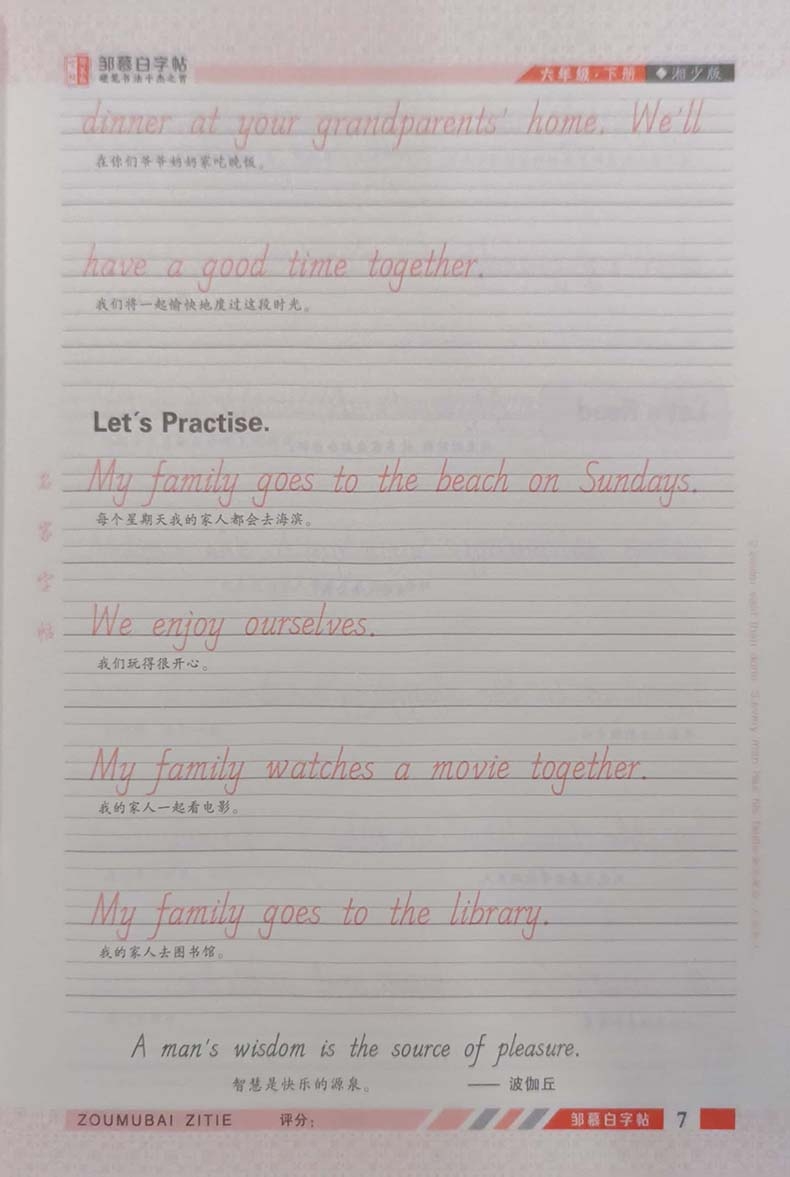 邹慕白字帖
硬笔书法十杰之首
六年级·下册 ◆湘少版
dinner at your grandparents' home. We'll
在你们爷爷奶奶家吃晚饭。
have a good time together.
我们将一起愉快地度过这段时光。
Let's Practise.
My family goes to the beach on Sundays.
每个星期天我的家人都会去海滨。
We enjoy ourselves.
我们玩得很开心。
My family watches a movie together.
我的家人一起看电影。
My family goes to the library.
我的家人去图书馆。
名家字帖
A man's wisdom is the source of pleasure.
智慧是快乐的源泉。 —— 波伽丘
ZOUMUBAI ZITIE 评分: 邹慕白字帖 7